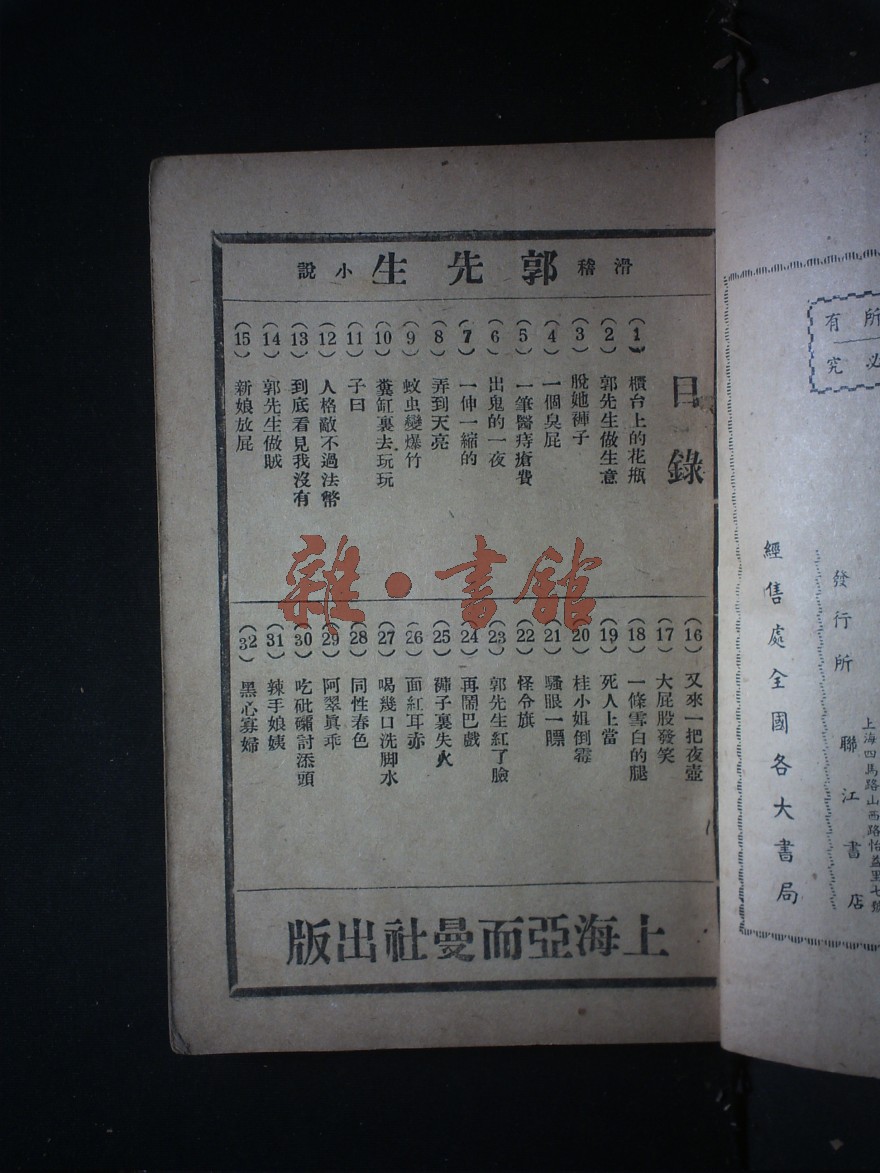 滑稽 郭先生 小說
目錄
(1) 櫃台上的花瓶
(2) 郭先生做生意
(3) 脫她褲子
(4) 一個臭屁
(5) 一筆醫痔瘡費
(6) 出鬼的一夜
(7) 一伸一縮的
(8) 弄到天亮
(9) 蚊虫變爆竹
(10) 糞缸裏去玩玩
(11) 子曰
(12) 人格敵不過法幣
(13) 到底看見我沒有
(14) 郭先生做賊
(15) 新娘放屁
(16) 又來一把夜壺
(17) 大屁股發笑
(18) 一條雪白的腿
(19) 死人上當
(20) 桂小姐倒霉
(21) 騷眼一瞟
(22) 怪令旗
(23) 郭先生紅了臉
(24) 再鬧巴戲
(25) 褲子裏失火
(26) 面紅耳赤
(27) 喝幾口洗脚水
(28) 同性春色
(29) 阿翠眞乖
(30) 吃砒礵討添頭
(31) 辣手娘姨
(32) 黑心寡婦
上海亞而曼社出版
雜·書館
所
有
必
究
發行所
聯江書店
上海四馬路山西路怡益里七號
經售處全國各大書局